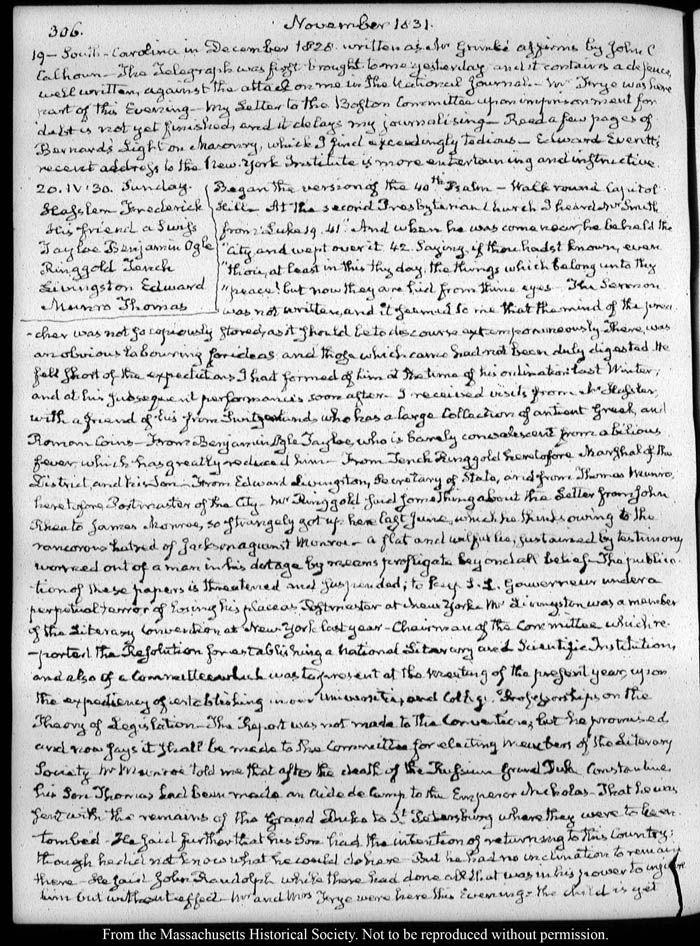 306.
November 1831.
19 - South-Carolina in December 1828 written as Mr Grimké affirms by John C
Calhoun - The Telegraph was first brought to me yesterday and it contains a defence,
well written, against the attack on me in the National Journal - Mr Frye was here
part of this Evening - My Letter to the Boston Committee upon imprisonment for
debt is not yet finished, and it delays my journalising - Read a few pages of
Bernard's Light on Masonry, which I find exceedingly tedious - Edward Everett's
recent address to the New-York Institute is more entertaining and instructive.
20. IV:30. Sunday.
Hasslem Frederick
His friend a Swiss
Tayloe Benjamin Ogle
Ringgold Tench
Livingston Edward
Munro Thomas
Began the version of the 40th Psalm - Walk round Capitol
Hill - At the second Presbyterian Church I heard Mr Smith
from Luke 19. 41. "And when he was come near, he beheld the
"City and wept over it 42. Saying, if thou hadst known, even
"thou, at least in this thy day, the things which belong unto thy
"peace! but now they are hid from thine eyes - The Sermon
was not written, and it seemed to me that the mind of the prea-
-cher was not so copiously stored, as it should be to discourse extemporaneously There, was
an obvious labouring for ideas and those which came had not been duly digested. He
fell short of the expectations I had formed of him at the time of his ordination last Winter,
and at his subsequent performances soon after I received visits from Mr
with a friend of his from Switzerland, who has a large Collection of antient Greek, and
Roman Coins - From Benjamin Ogle Tayloe, who is barely convalescent from a bilious
fever, which has greatly reduced him - From Tench Ringgold heretofore Marshal of the
District, and his Son - From Edward Livingston, Secretary of State, and from Thomas Munro,
heretofore Postmaster of the City - Mr Ringgold said something about the Letter from John
Rhea to James Monroe, so strangely got up here last June, which he thinks owing to the
rancorous hatred of Jackson against Monroe - a flat and wilful lie, sustained by testimony
wormed out of a man in his dotage by means profligate beyond all belief - The publica-
tion of these papers is threatened and suspended; to keep S. L. Gouverneur under a
perpetual terror of losing his place as Postmaster at New York. Mr Livingston was a member
of the Literary Convention at New York last year - Chairman of the Committee which re-
-ported the Resolution for establishing a National Literary and Scientific Institution,
and also of a Committee which was to present at the meeting of the present year, upon
the expediency of establishing in our Universities, and Colleges Professorships on the
Theory of Legislation - The Report was not made to the Convention, but he promised
and now says it shall be made to the Committee for electing members of the Literary
Society Mr Munroe told me that after the death of the Russian Grand Duke Constantine,
his Son Thomas had been made an aid de Camp to the Emperor Nicholas - That he was
sent with the remains of the Grand Duke to St Petersburg where they were to be en-
tombed - He said further that his Son had the intention of returning to this Country;
though he did not know what he could do here - But he had no inclination to remain
there - He said John Randolph while there had done all that was in his power to injure
him but without effect - Mr and Mrs Frye were here this Evening - the child is yet
From the Massachusetts Historical Society. Not to be reproduced without permission.